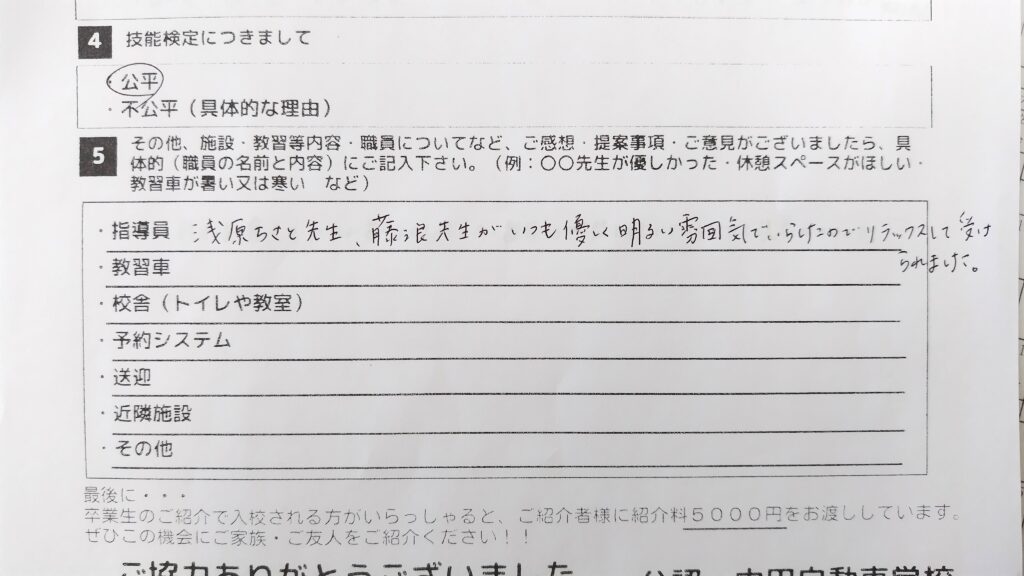 4 技能検定につきまして
・公平
・不公平（具体的な理由）
5 その他、施設・教習等内容・職員についてなど、ご感想・提案事項・ご意見がございましたら、具
体的（職員の名前と内容）にご記入下さい。（例：〇〇先生が優しかった・休憩スペースがほしい・
教習車が暑い又は寒い　など）
・指導員 浅原ちさと先生、藤浪先生がいつも優しく明るい雰囲気でいらしたのでリラックスして受け
られました。
・教習車
・校舎（トイレや教室）
・予約システム
・送迎
・近隣施設
・その他
最後に・・・
卒業生のご紹介で入校される方がいらっしゃると、ご紹介者様に紹介料５０００円をお渡ししています。
ぜひこの機会にご家族・ご友人をご紹介ください！！
ご協力ありがとうございました 公認 自動車学校